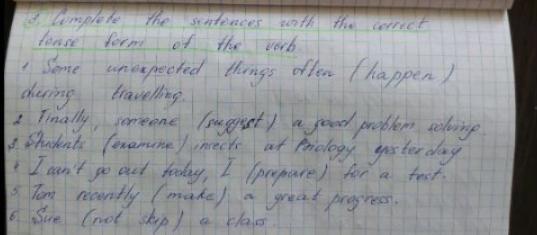 3. Complete the sentences with the correct
tense form of the verb.
1. Some unexpected things often (happen)
during travelling.
2. Finally, someone (suggest) a good problem solving
3. Students (examine) insects at yesterday
4. I can't go out today, I (prepare) for a test.
5. Tom recently (make) a great progress.
6. Sue (not skip) a class